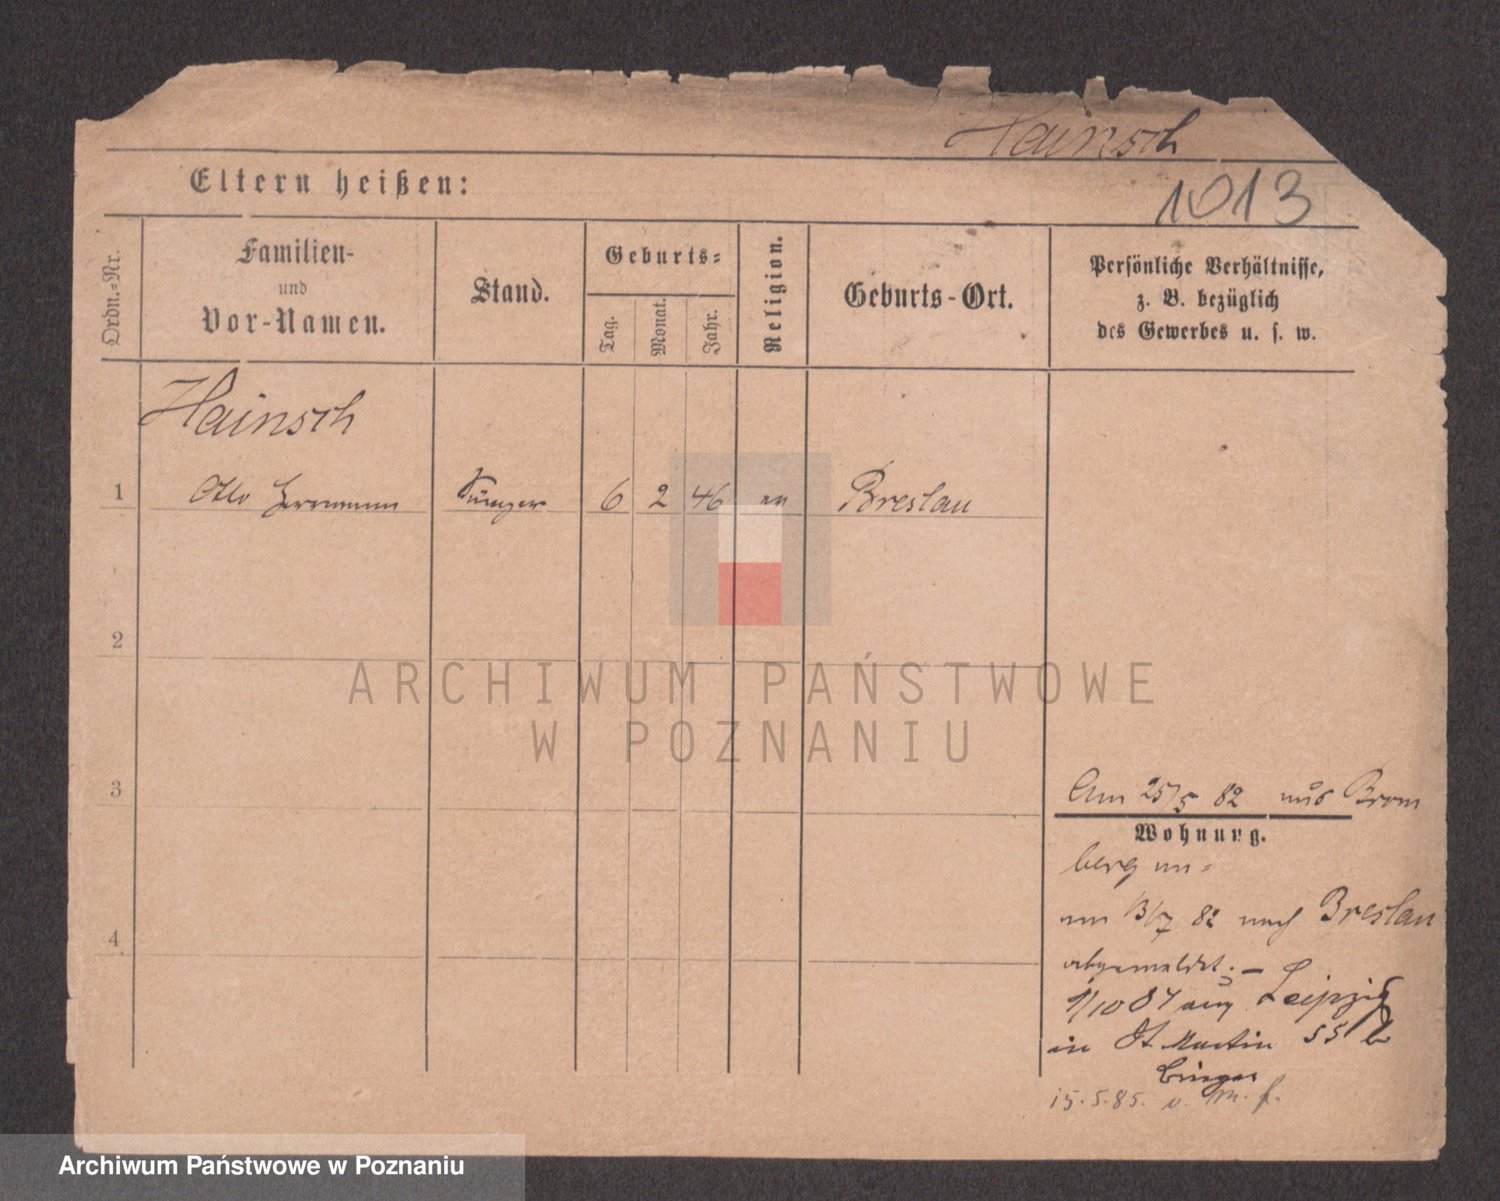 Hainsch
Eltern heißen:
1013
Ordn.=Nr.
Familien-
und
Vor-Namen.
Stand.
Geburts=
Tag.
Monat.
Jahr.
Religion.
Geburts-Ort.
Persönliche Verhältnisse,
z. B. bezüglich
des Gewerbes u. s. w.
Hainsch
1 Otto Herrmann Sänger 6 2 46 ev Breslau
2
3
4
ARCHIWUM PAŃSTWOWE
W POZNANIU
Am 25/5 82 aus Brom
Wohnung.
berg an=
am 13/7 82 nach Breslau
abgemeldet. –
1/10 84 aus Leipzig
in St Martin 55
15.5.85. v.
Archiwum Państwowe w Poznaniu